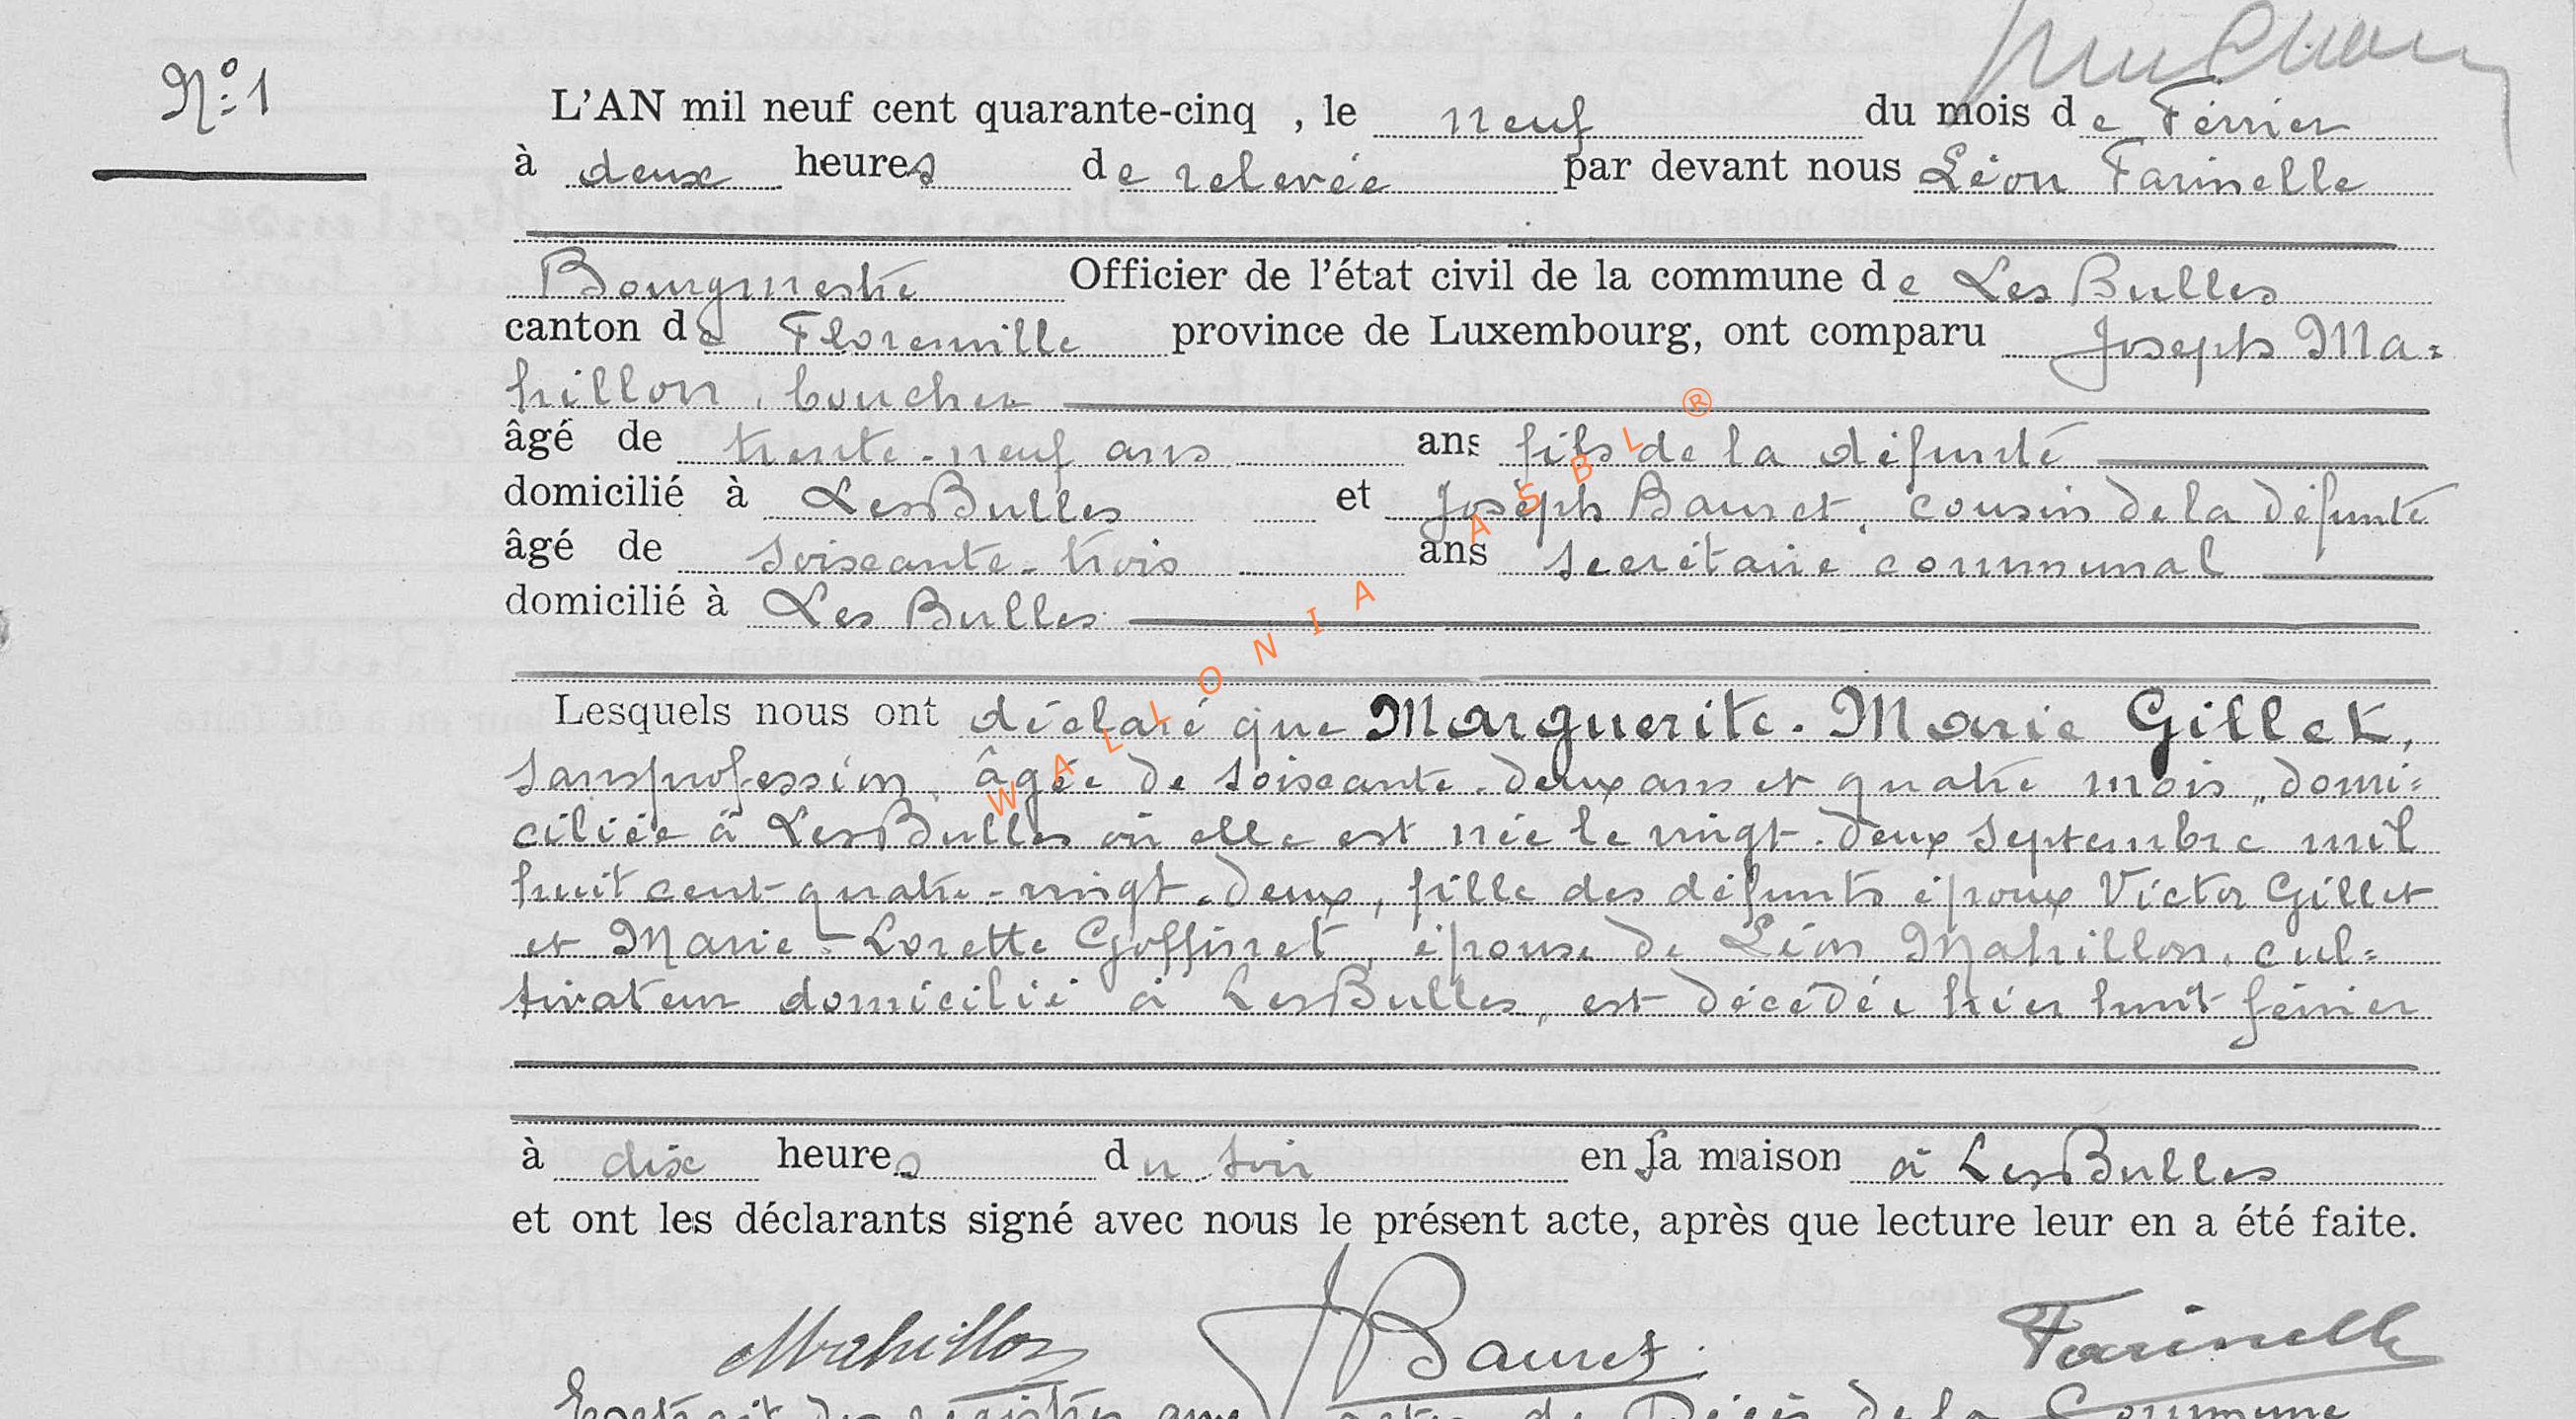 N°: 1
L'AN mil neuf cent quarante-cinq , le neuf du mois de Février
à deux heures de relevée par devant nous Léon Farinelle
Bourgmestre Officier de l'état civil de la commune de Les Bulles
canton de Florenville province de Luxembourg, ont comparu Joseph Ma=
hillon, boucher
âgé de trente-neuf ans ans fils de la défunte
domicilié à Les Bulles et Joseph Bauret, cousin de la défunte
âgé de soixante-trois ans secrétaire communal
domicilié à Les Bulles
Lesquels nous ont déclaré que Marguerite-Marie Gillet,
sans profession, âgée de soixante-deux ans et quatre mois, domi=
ciliée à Les Bulles où elle est née le vingt-deux septembre mil
huit cent quatre-vingt-deux, fille des défunts époux Victor Gillet
et Marie-Lorette Goffinet, épouse de Léon Mahillon, cul=
tivateur domicilié à Les Bulles, est décédée hier huit février
à dix heures du soir en sa maison à Les Bulles
et ont les déclarants signé avec nous le présent acte, après que lecture leur en a été faite.
Mahillon JBauret Farinelle
Extrait des registres aux actes de Décès de la Commune
WALLONIA ASBL ®